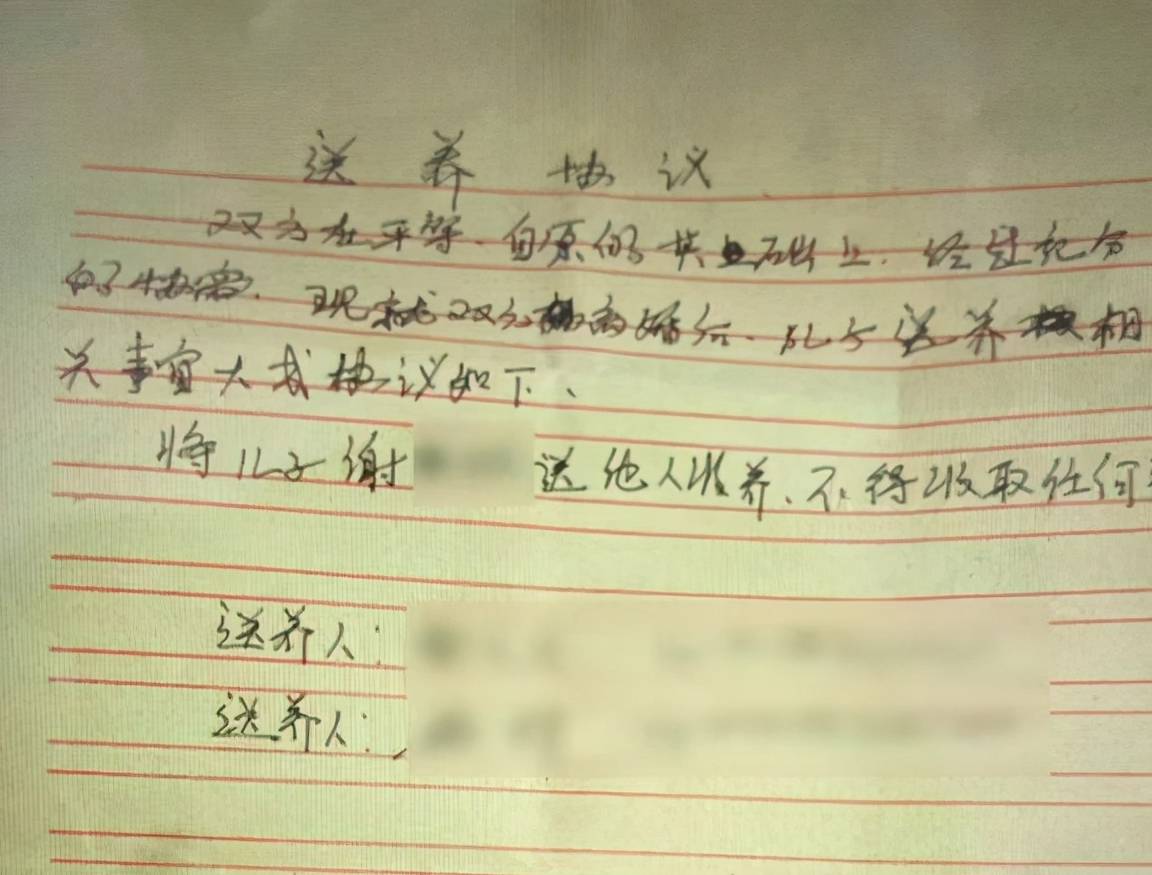 送养协议
双方在平等、自原的基础上.经过充分
的协商.现就双方离婚后.儿子送养相
关事宜大成协议如下、
将儿子谢 送他人收养、不得收取任何
送养人:
送养人: